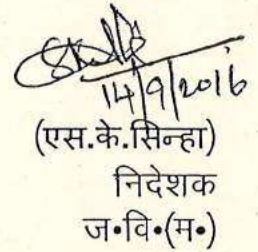 14/9/2016
(एस.के.सिन्हा)
निदेशक
ज॰वि॰(म॰)